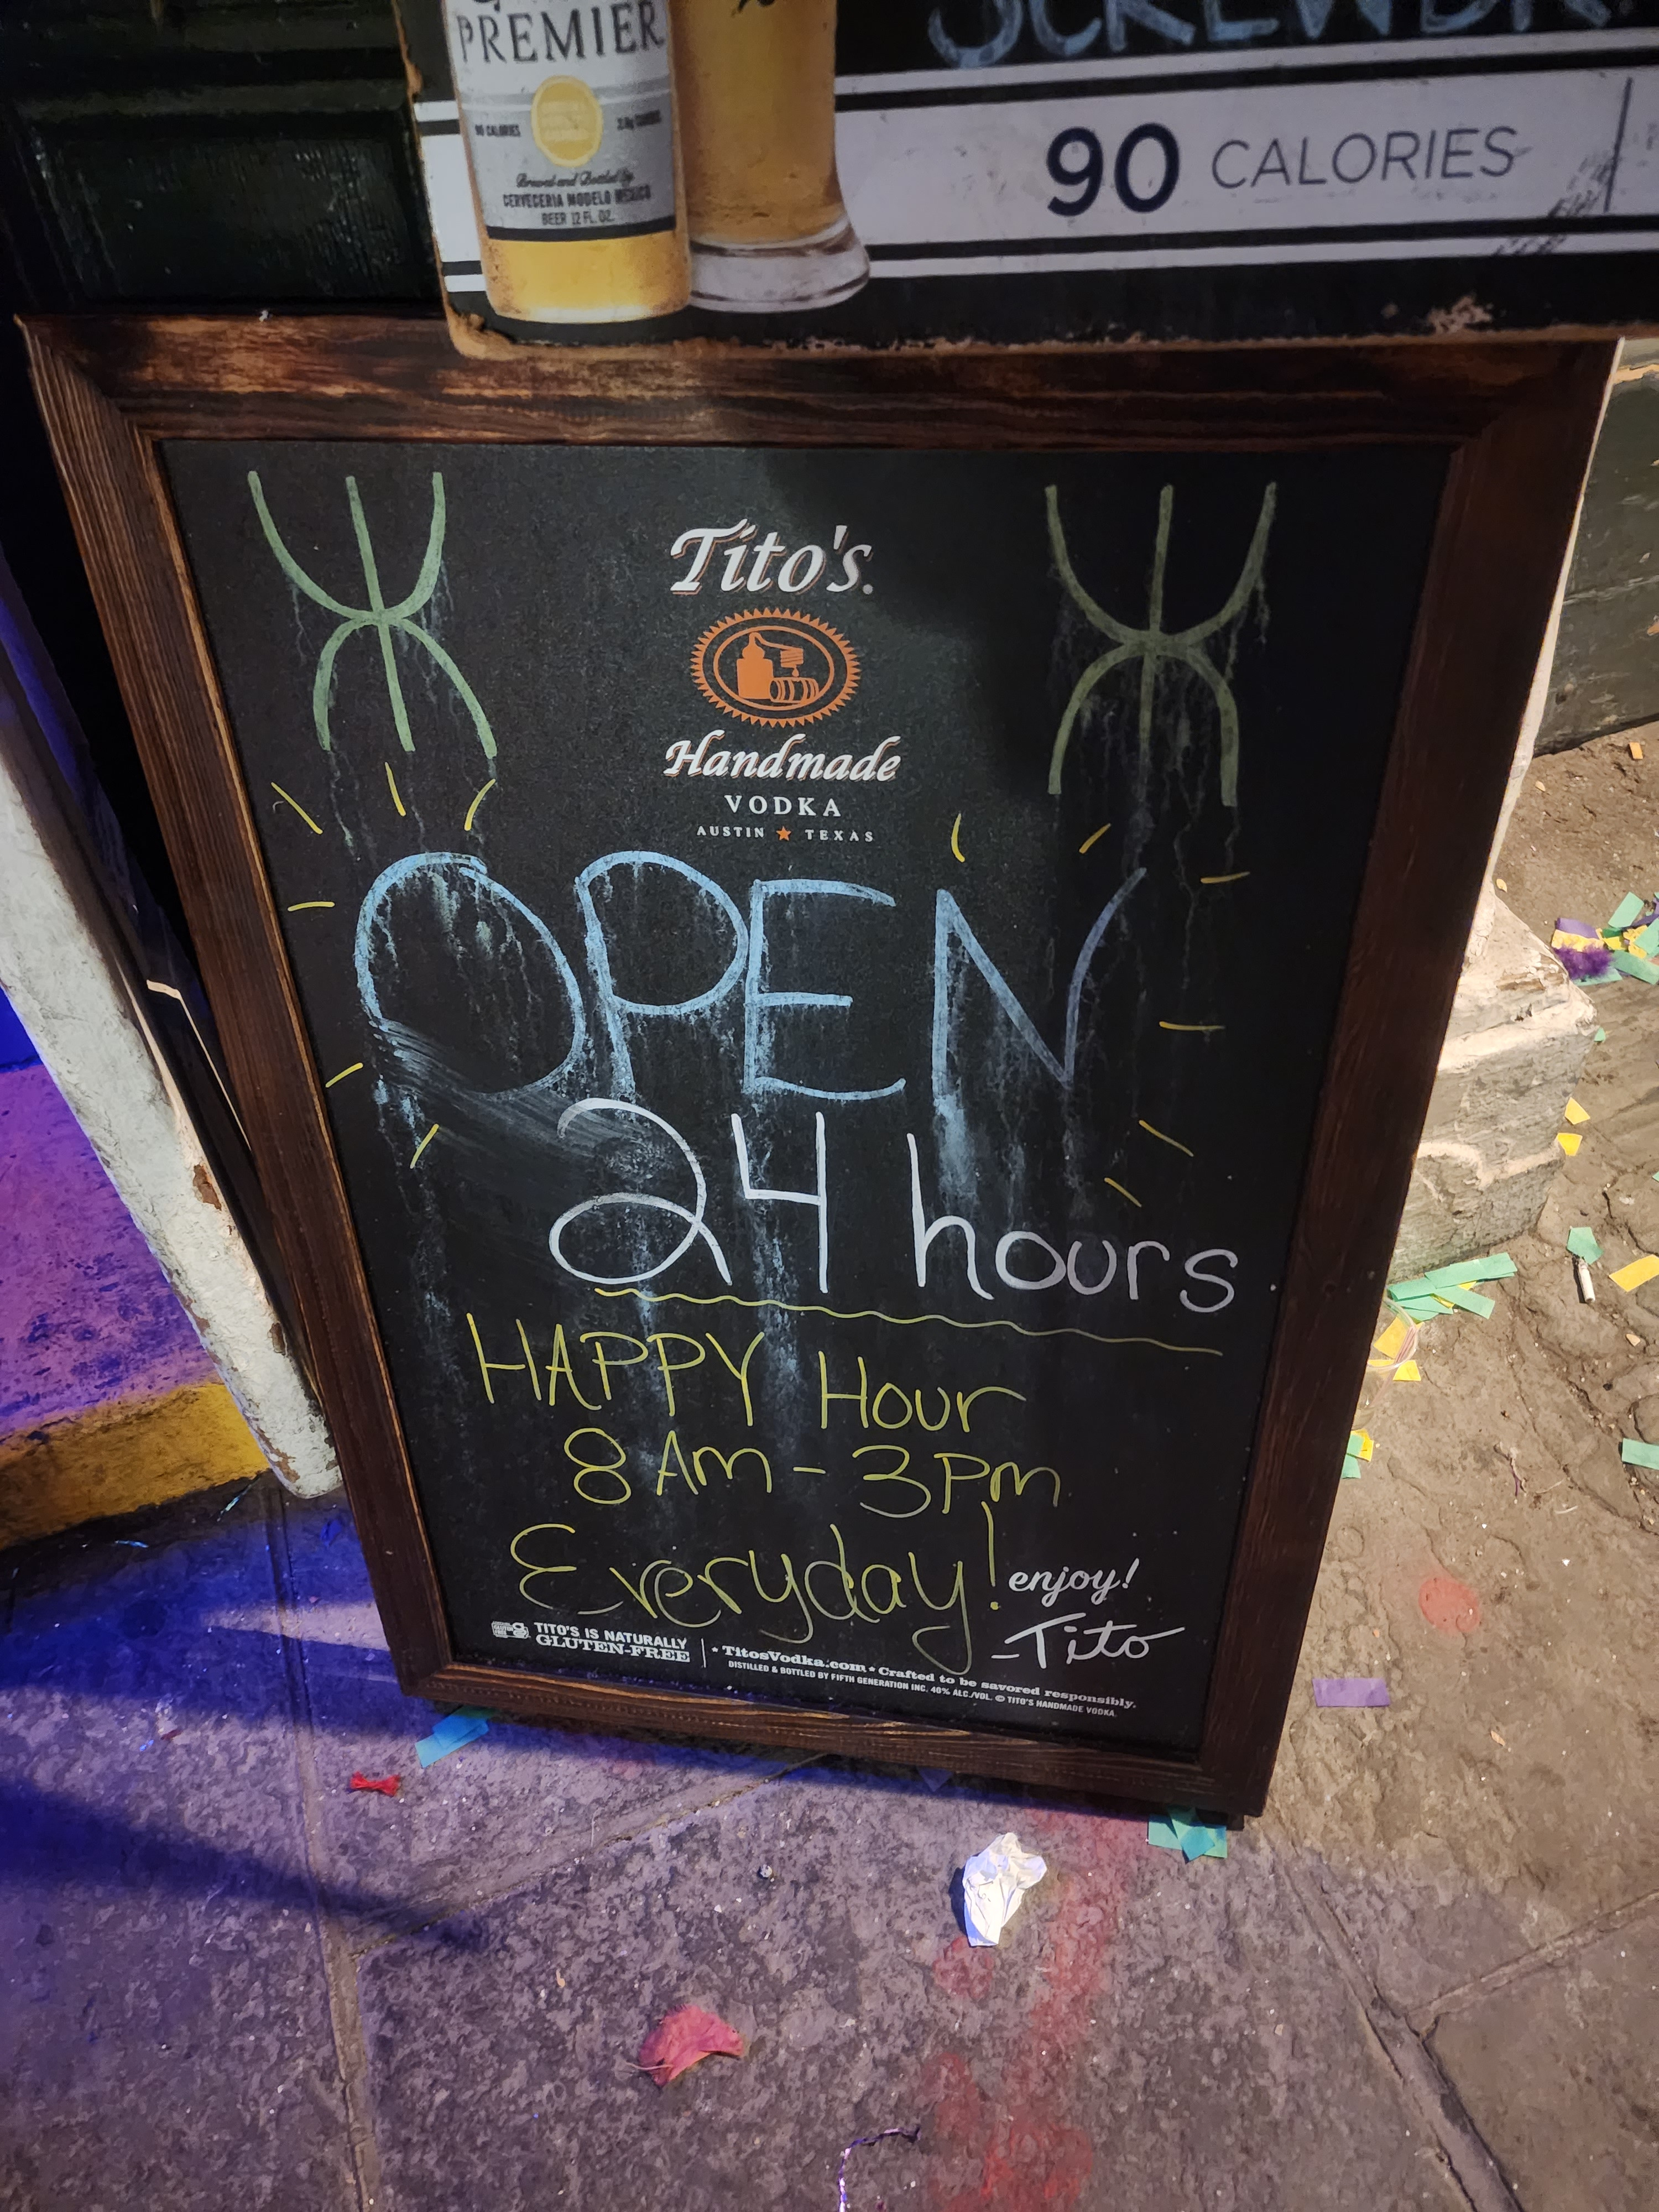 PREMIER
90 CALORIES
Brewed and Bottled by
CERVECERIA MODELO MEXICO
BEER 12 FL. OZ.
90 CALORIES
Tito's.
Handmade
VODKA
AUSTIN ★ TEXAS
OPEN
24 hours
HAPPY Hour
8 Am - 3 Pm
Everyday!
enjoy!
-Tito
TITO'S IS NATURALLY
GLUTEN-FREE
• TitosVodka.com • Crafted to be savored responsibly.
DISTILLED & BOTTLED BY FIFTH GENERATION INC. 40% ALC./VOL. © TITO'S HANDMADE VODKA.